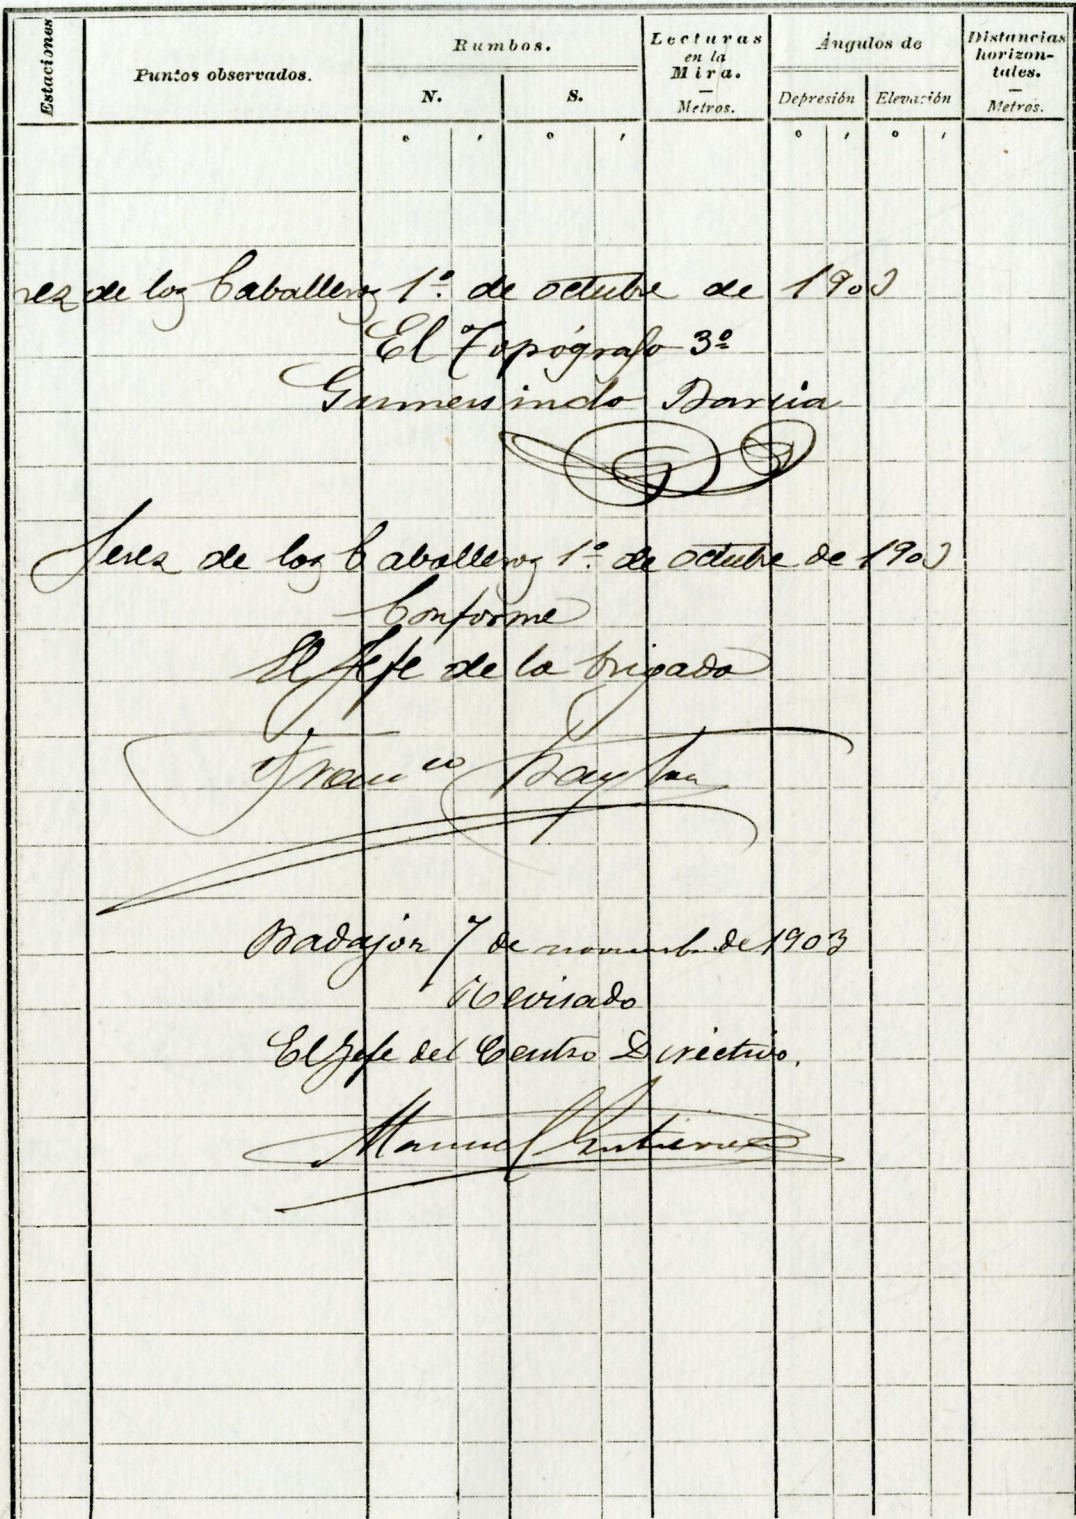 Estaciones
Puntos observados.
Rumbos.
N.
S.
Lecturas
en la
Mira.
Metros.
Ángulos de
Depresión
Elevación
Distancias
horizon-
tales.
Metros.
° ′ ° ′ ° ′ ° ′
rez de los Caballeros 1º. de octubre de 1903
El Topógrafo 3º
Gumersindo Garcia
Jerez de los Caballeros 1º. de octubre de 1903
Conforme
El Jefe de la brigada
Franco
Badajoz 7 de noviembre de 1903
Revisado
El Jefe del Centro Directivo.
Manuel Gutierrez